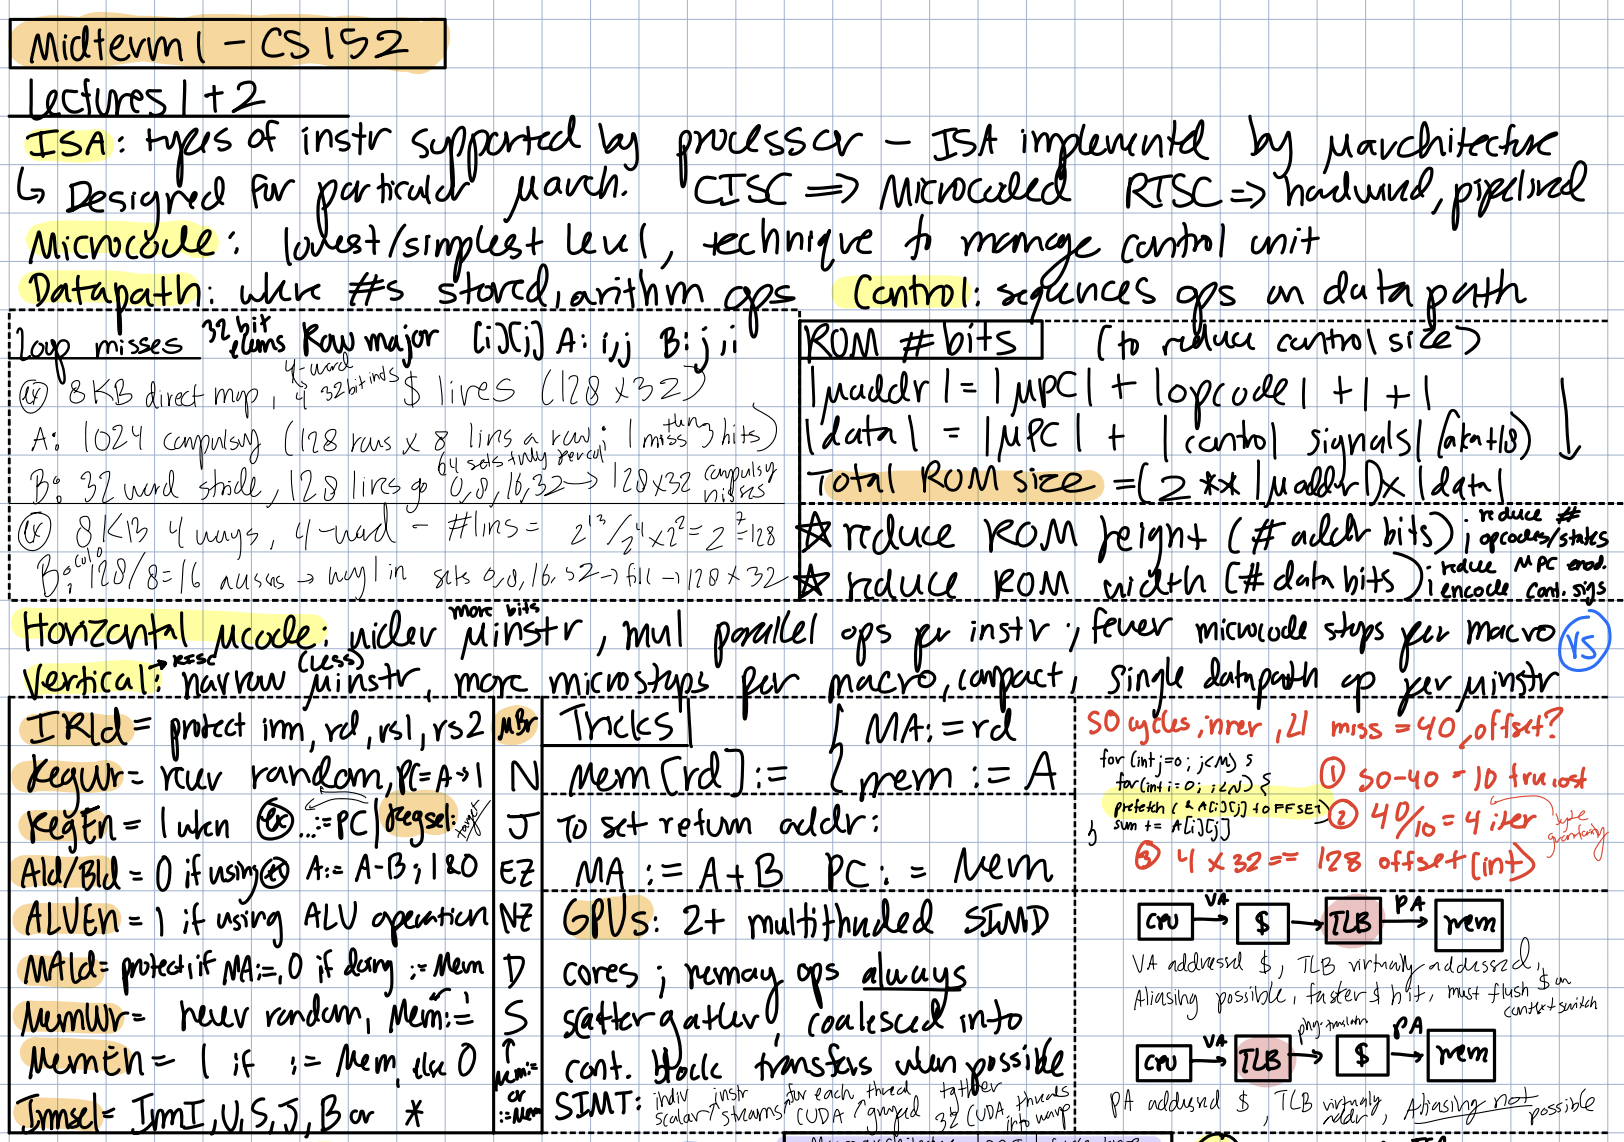 Midterm 1 - CS 152
Lectures 1 + 2
ISA: types of instr supported by processor - ISA implemented by μarchitecture
↳ Designed for particular μarch. CISC => Microcoded RISC => hardwired, pipelined
Microcode: lowest/simplest level, technique to manage control unit
Datapath: where #s stored, arithm ops Control: sequences ops on datapath
Loop misses 32 bit elems Row major [i][j] A: i,j B: j,i
ex 8KB direct map, 4-word 4 32 bit inds $ lines (128 x 32)
A: 1024 compulsory (128 rows x 8 lines a row; 1 miss then 3 hits)
B: 32 word stride, 128 lines go 0,8,16,32 → 128x32 compulsory misses
64 sets fully
ex 8KB 4 ways, 4-word - #lines = 2^13/2^4x2^2 = 2^7 = 128
B: col 0 128/8=16 → way 1 in sets 0,8,16,32 → fill → 128 x 32
ROM # bits (to reduce control size)
|μaddr| = |μPC| + |opcode| + 1 + 1
|data| = |μPC| + |control signals|
Total ROM size = (2 ** |μaddr|) x |data|
☆ reduce ROM height (# addr bits); reduce # opcodes/states
☆ reduce ROM width (# data bits); reduce MPC encd. encode cont. sigs
Horizontal μcode: wider μinstr, mul parallel ops per instr; fewer microcode steps per macro
more bits
VS
Vertical: → RISC narrow (less) μinstr, more microsteps per macro, compact, single datapath op per μinstr
IRld = protect imm, rd, rs1, rs2
RegWr = never random, PC=A → 1
RegEn = 1 when ex ...:=PC | Regsel: target
Ald/Bld = 0 if using ex A:= A-B; 1&0
ALUEn = 1 if using ALU operation
MAld = protect, if MA:=, 0 if doing := Mem
MemWr = never random, Mem:= 1
MemEn = 1 if := Mem, else 0
Immsel = ImmI, U, S, J, B or *
μBr
N
J
EZ
NZ
D
S
↑
Mem:=
or
:=Mem
Tricks
Mem[rd] := { MA:=rd
{ mem := A
To set return addr:
MA := A+B PC := Mem
GPUs: 2+ multithreaded SIMD
cores; memory ops always
scatter gather, coalesced into
cont. block transfers when possible
SIMT: indiv scalar instr streams for each CUDA thread grouped together 32 CUDA threads into warp
50 cycles, inner, L1 miss = 40, offset?
for (int j=0; j<M) {
for (int i=0; i<N) {
prefetch (&A[i][j] + OFFSET)
sum += A[i][j]
}
① 50-40 = 10 true cost
② 40/10 = 4 iter
byte quantity
③ 4 x 32 == 128 offset (int)
CPU VA → $ → TLB PA → mem
VA addressed $, TLB virtually addressed,
Aliasing possible, faster $ hit, must flush $ on
context switch
CPU VA → TLB → $ PA → mem
PA addressed $, TLB virtually addr, Aliasing not possible